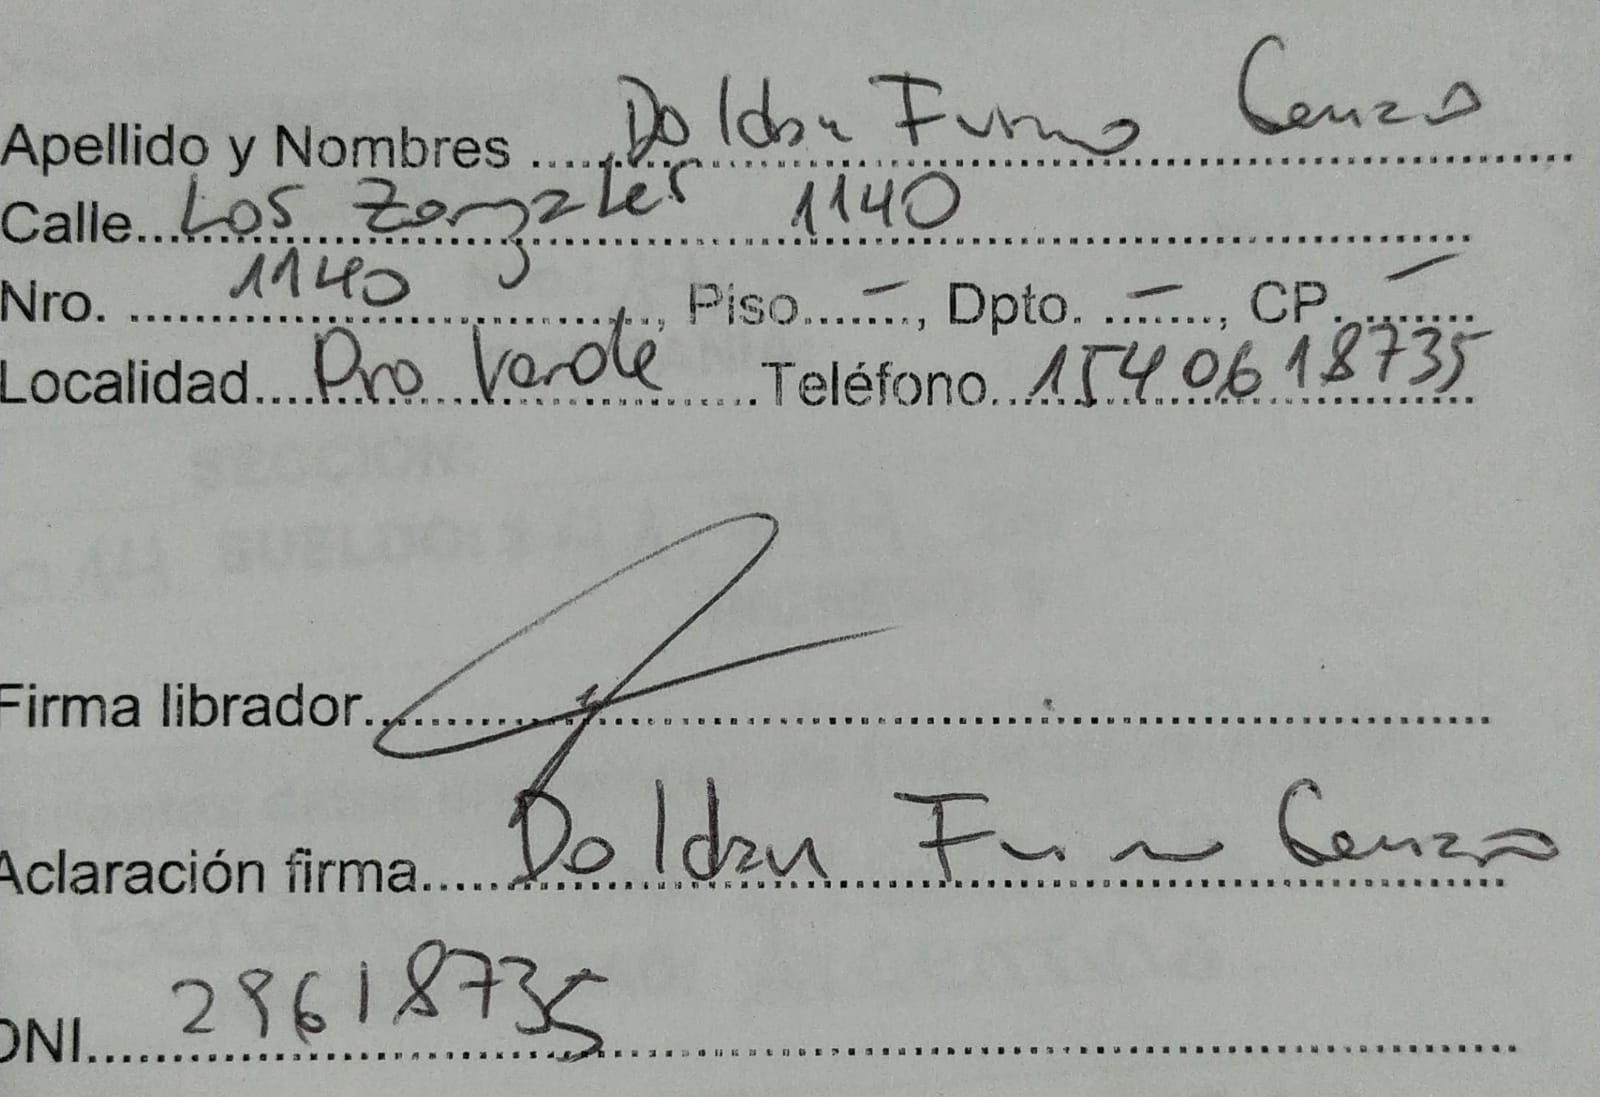 Apellido y Nombres Doldan Genzo
Calle Los Zorzales 1140
Nro. 1140, Piso. –, Dpto. –, CP. –
Localidad Pro Verde Teléfono. 1540618735
SECCION:
SUELDO: $
Firma librador
Aclaración firma Doldan Genzo
DNI 29618735